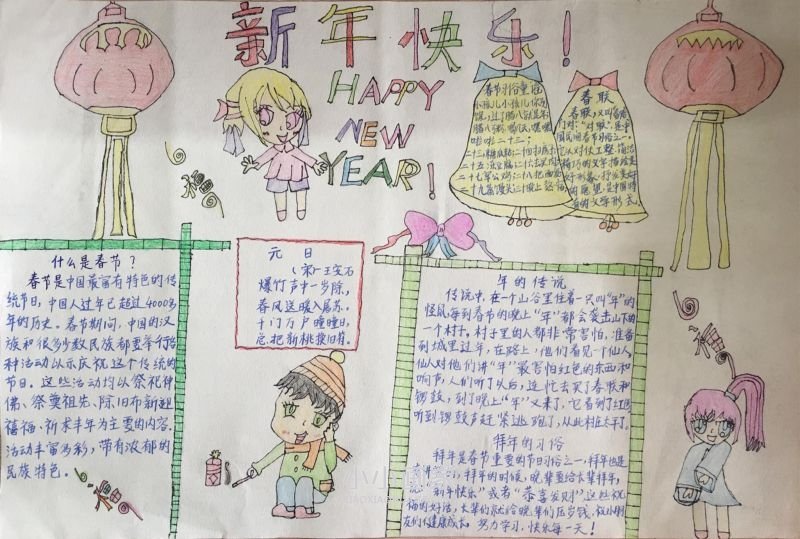 新年快乐!
HAPPY
NEW
YEAR!
春联
什么是春节?
春节是中国最富有特色的传
统节日,中国人过年已超过4000多
年的历史。春节期间,中国的汉
族和很多少数民族都要举行各
种活动以示庆祝这个传统的
节日。这些活动均以祭祀神
佛、祭奠祖先、除旧布新迎
禧福、祈求丰年为主要的内容.
活动丰富多彩,带有浓郁的
民族特色。
元日
(宋)王安石
爆竹声中一岁除,
春风送暖入屠苏.
千门万户曈曈日,
总把新桃换旧符。
年的传说
传说中,在一个山谷里住着一只叫"年"的
怪兽,每到春节的晚上"年"都会袭击山下的
一个村子。村子里的人都非常害怕,准备
到城里过年,在路上,他们看见一个仙人,
仙人对他们讲"年"最害怕红色的东西和
响声,人们听了以后,连忙去买了春联和
锣鼓,到了晚上"年"又来了,它看到了红色
听到锣鼓声赶紧逃跑了,从此村庄太平了。
拜年的习俗
拜年是春节重要的节日习俗之一,拜年也是
拜年的时候,晚辈要给长辈拜年,
"新年快乐"或者"恭喜发财"这些祝
福的好话,长辈们就给晚辈们压岁钱,祝小朋
友们健康成长。努力学习,快乐每一天!
福
福
福